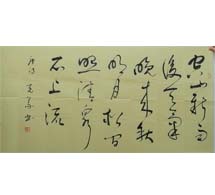 空山新雨
後天气
晚来秋
明月松间
照清泉
石上流